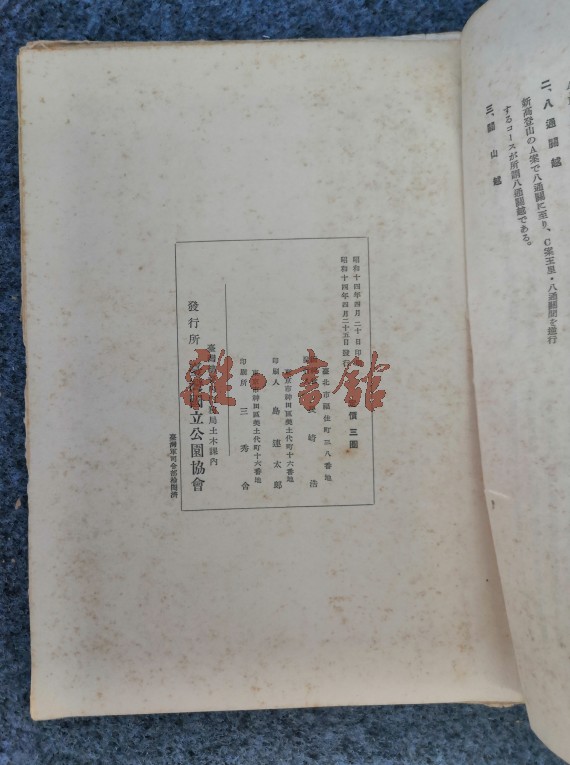 二、八通關越
新高登山のA案で八通關に至り、C案玉里・八通關間を逆行
するコースが所謂八通關越である。
三、關山越
昭和十四年四月二十日印
昭和十四年四月二十五日發行
價三圓
臺北市福住町三八番地
崎浩
京市神田區美土代町十六番地
印刷人 島連太郎
東京市神田區美土代町十六番地
印刷所 三秀舍
臺灣 局土木課內
發行所 國立公園協會
臺灣軍司令部檢閱濟
雜·書館